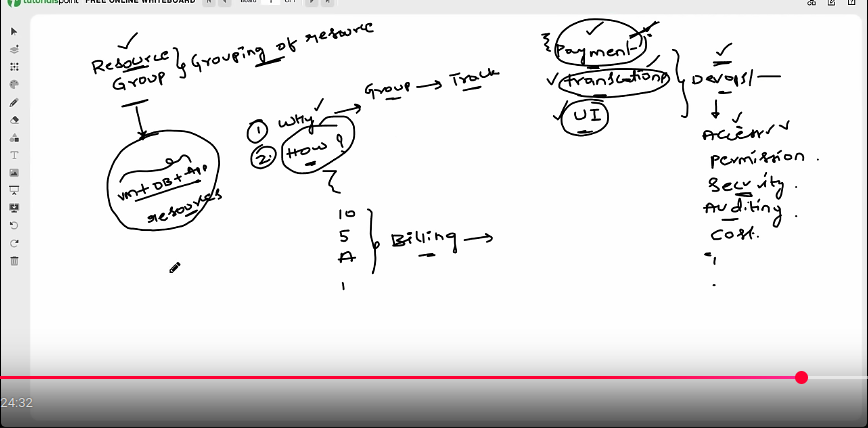 tutorialspoint FREE ONLINE WHITEBOARD
Resource
Group
Grouping of resource
VM + DB + App
resources
1 Why
2. How ?
Group → Track
10
5
A
1
Billing →
Payment
transcations
UI
Devops/—
Access
Permission .
Security .
Auditing .
Cost.
24:32